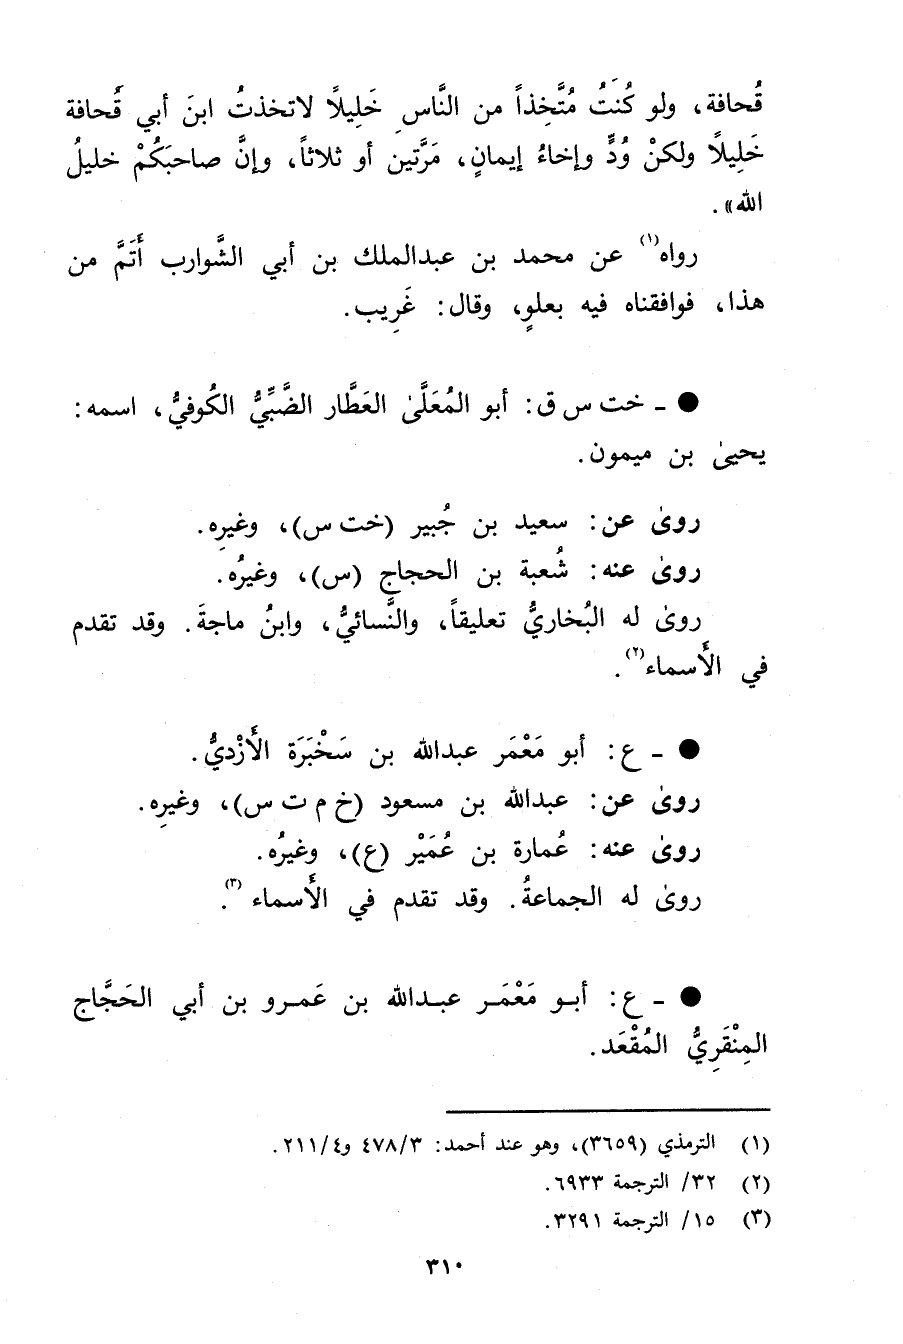 قُحافة، ولو كُنَتُ مُتَّخِذاً من النَّاسِ خَلِيلًا لاتخذتُ ابنَ أبي قُحافة
خَلِيلًا ولكنْ وُدٌّ وإخاءُ إيمانٍ، مَرَّتين أو ثلاثاً، وإنَّ صاحبَكُمْ خليلُ
الله».
رواه(١) عن محمد بن عبدالملك بن أبي الشَّوارب أَتَمَّ من
هذا، فوافقناه فيه بعلوٍ، وقال: غَرِيب.
● ـ خت س ق: أبو المُعَلَّىٰ العَطَّار الضَّبِّيُّ الكُوفيُّ، اسمه:
يحيىٰ بن ميمون.
روىٰ عن: سعيد بن جُبير (خت س)، وغيرِه.
روىٰ عنه: شُعبة بن الحجاج (س)، وغيرُه.
روىٰ له البُخاريُّ تعليقاً، والنَّسائيُّ، وابنُ ماجةَ. وقد تقدم
في الأَسماء(٢).
● ـ ع: أبو مَعْمَر عبدالله بن سَخْبَرَة الأَزْديُّ.
روىٰ عن: عبدالله بن مسعود (خ م ت س)، وغيرِه.
روىٰ عنه: عُمارة بن عُمَيْر (ع)، وغيرُه.
روىٰ له الجماعةُ. وقد تقدم في الأَسماء(٣).
● ـ ع: أبـو مَعْمَـر عبـدالله بن عَمـرو بن أبي الحَجَّاج
المِنْقَرِيُّ المُقْعَد.
(١) الترمذي (٣٦٥٩)، وهو عند أحمد: ٤٧٨/٣ و٢١١/٤.
(٢) ٣٢/ الترجمة ٦٩٣٣.
(٣) ١٥/ الترجمة ٣٢٩١.
٣١٠